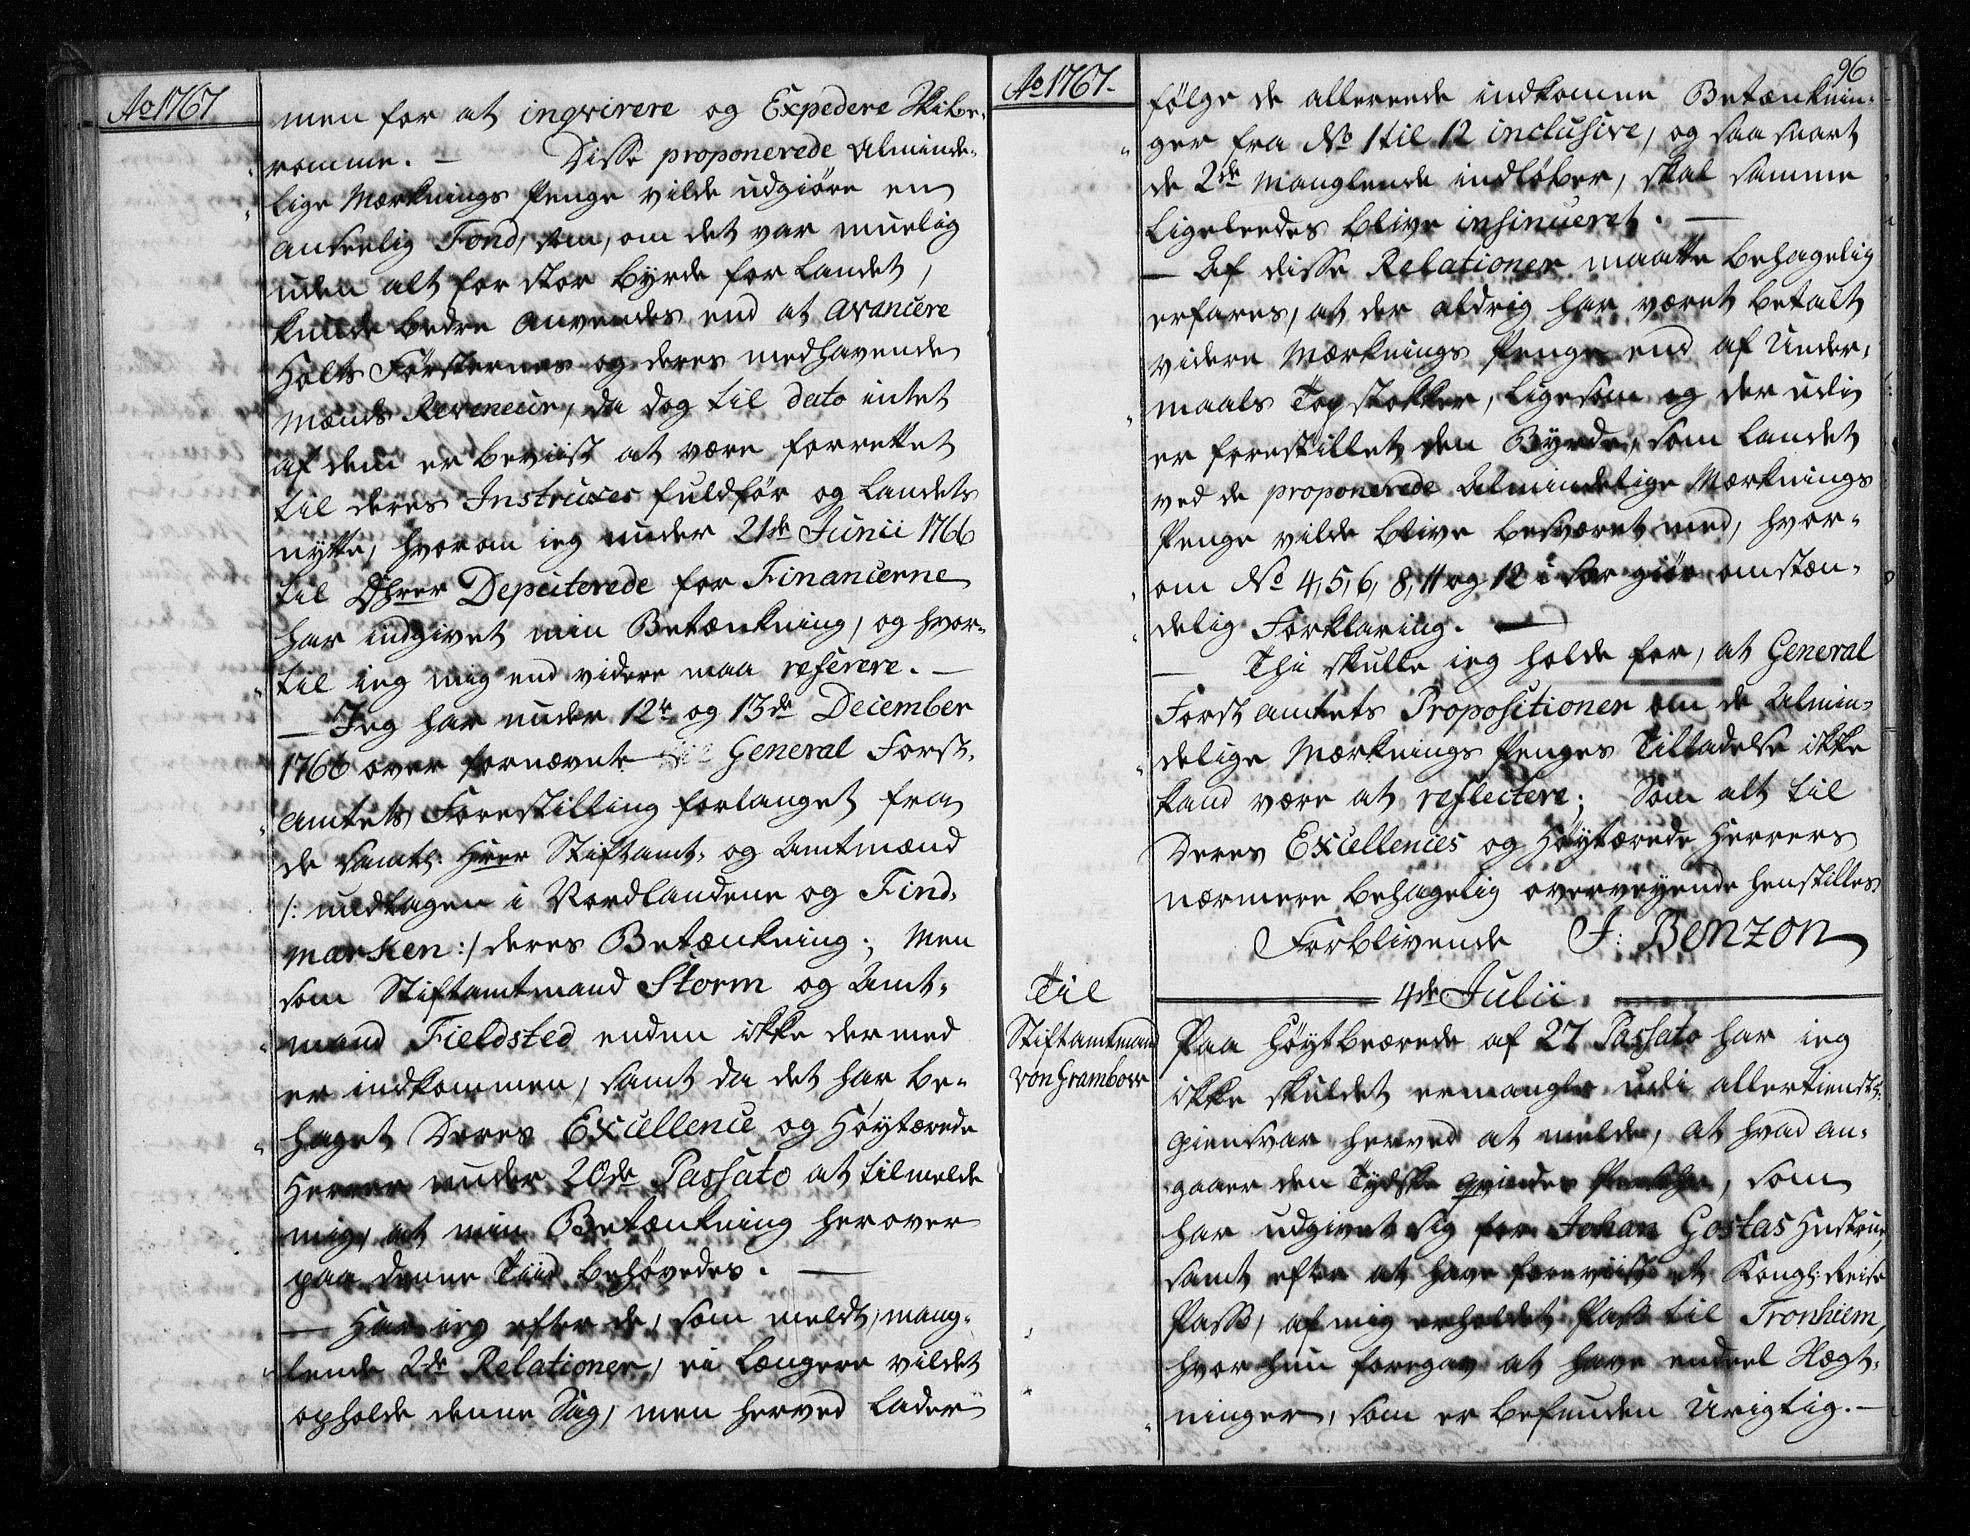 Ao 1767
men for at inqvirere og Expedere Skibe-
romme. — Disse proponerede Alminde-
lige Mærknings Penge vilde udgiøre en
anseelig Fond, som, om det var muelig
uden alt for stor byrde for Landet,
kunde bedre anvendes end at avancere
Holts Försternes og deres medhavende
Mænds Reveneur, da dog til dato intet
af dem er beviist at være forrettet
til deres Instruxes fuldför og Landets
nytte, hvorom ieg under 21de Junii 1766
til Dhrer Depeiterede for Financerne
har indgivet min Betænkning, og hvor-
til ieg mig end videre maa referere. —
— Jeg har under 12te og 13de December
1766 over fornævnte General Forst-
amtets Forestilling forlanget fra
de samtl: Hrrer Stiftamt- og Amtmænd
/: undtagen i Nordlandene og Find-
marken :/ deres Betænkning; Men
som Stiftamtmand Storm og Amt-
mand Fieldsted enden ikke dermed
er indkommen, samt da det har be-
haget Deres Excellence og Höytærede
Herrer under 20de Passato at tilmelde
mig, at min Betænkning herover
paa denne Tiid behøvedes. —
— Har ieg efter de, som meldt, mang-
lende 2de Relationer, ei længere vildet
opholde denne Sag, men herved lader
Ao 1767-
96
følge de allerede indkomne Betænknin-
ger fra No 1 til 12 inclusive, og saa snart
de 2de manglende indløber, skal samme
Ligeledes blive insinueret. —
— Af disse Relationer maatte behagelig
erfares, at der aldrig har været betalt
videre Mærknings Penge end af Under-
maals Topstokker, ligesom og der udi
er forestillet den Byrde, som Landet
ved de proponerede Almindelige Mærknings
Penge vilde blive besværet med, hvor-
om No 4, 5, 6, 8, 11 og 12 i sær giör omstæn-
delig Forklaring. —
— Thi skulle ieg holde for, at General
Forst amtets Propositioner om de Almin-
delige Mærknings Penges Tilladelse ikke
kand være at reflectere; Som alt til
Deres Excellencies og Höytærede Herrers
nærmere behagelig overveyende henstilles
Forblivende J: Benzon
Til
Stiftamtmand
von Grambow
4de Julii.
Paa Höytbeærede af 27 Passato har ieg
ikke skuldet ermangle udi allertienstl:
giensvar herved at melde, at hvad an-
gaaer den Tydske qvindes Persohn, som
har udgivet sig for Johan Gostas Hustrue,
samt efter at have foreviist et Kongl: Reise
Pass, af mig erholdet Pass til Tronhiem,
hvor hun foregav at have endeel Rægt-
ninger, som er befunden Urigtig. —